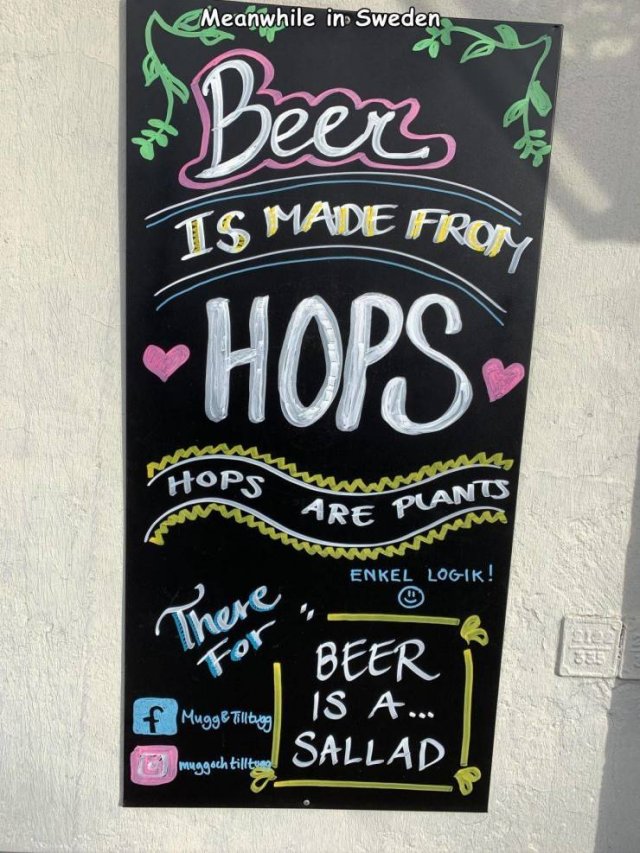 Meanwhile in Sweden
Beer
IS MADE FROM
HOPS
HOPS ARE PLANTS
ENKEL LOGIK!
There
For
"BEER
IS A...
SALLAD
f Mugg&Tilltugg
muggochtilltugg